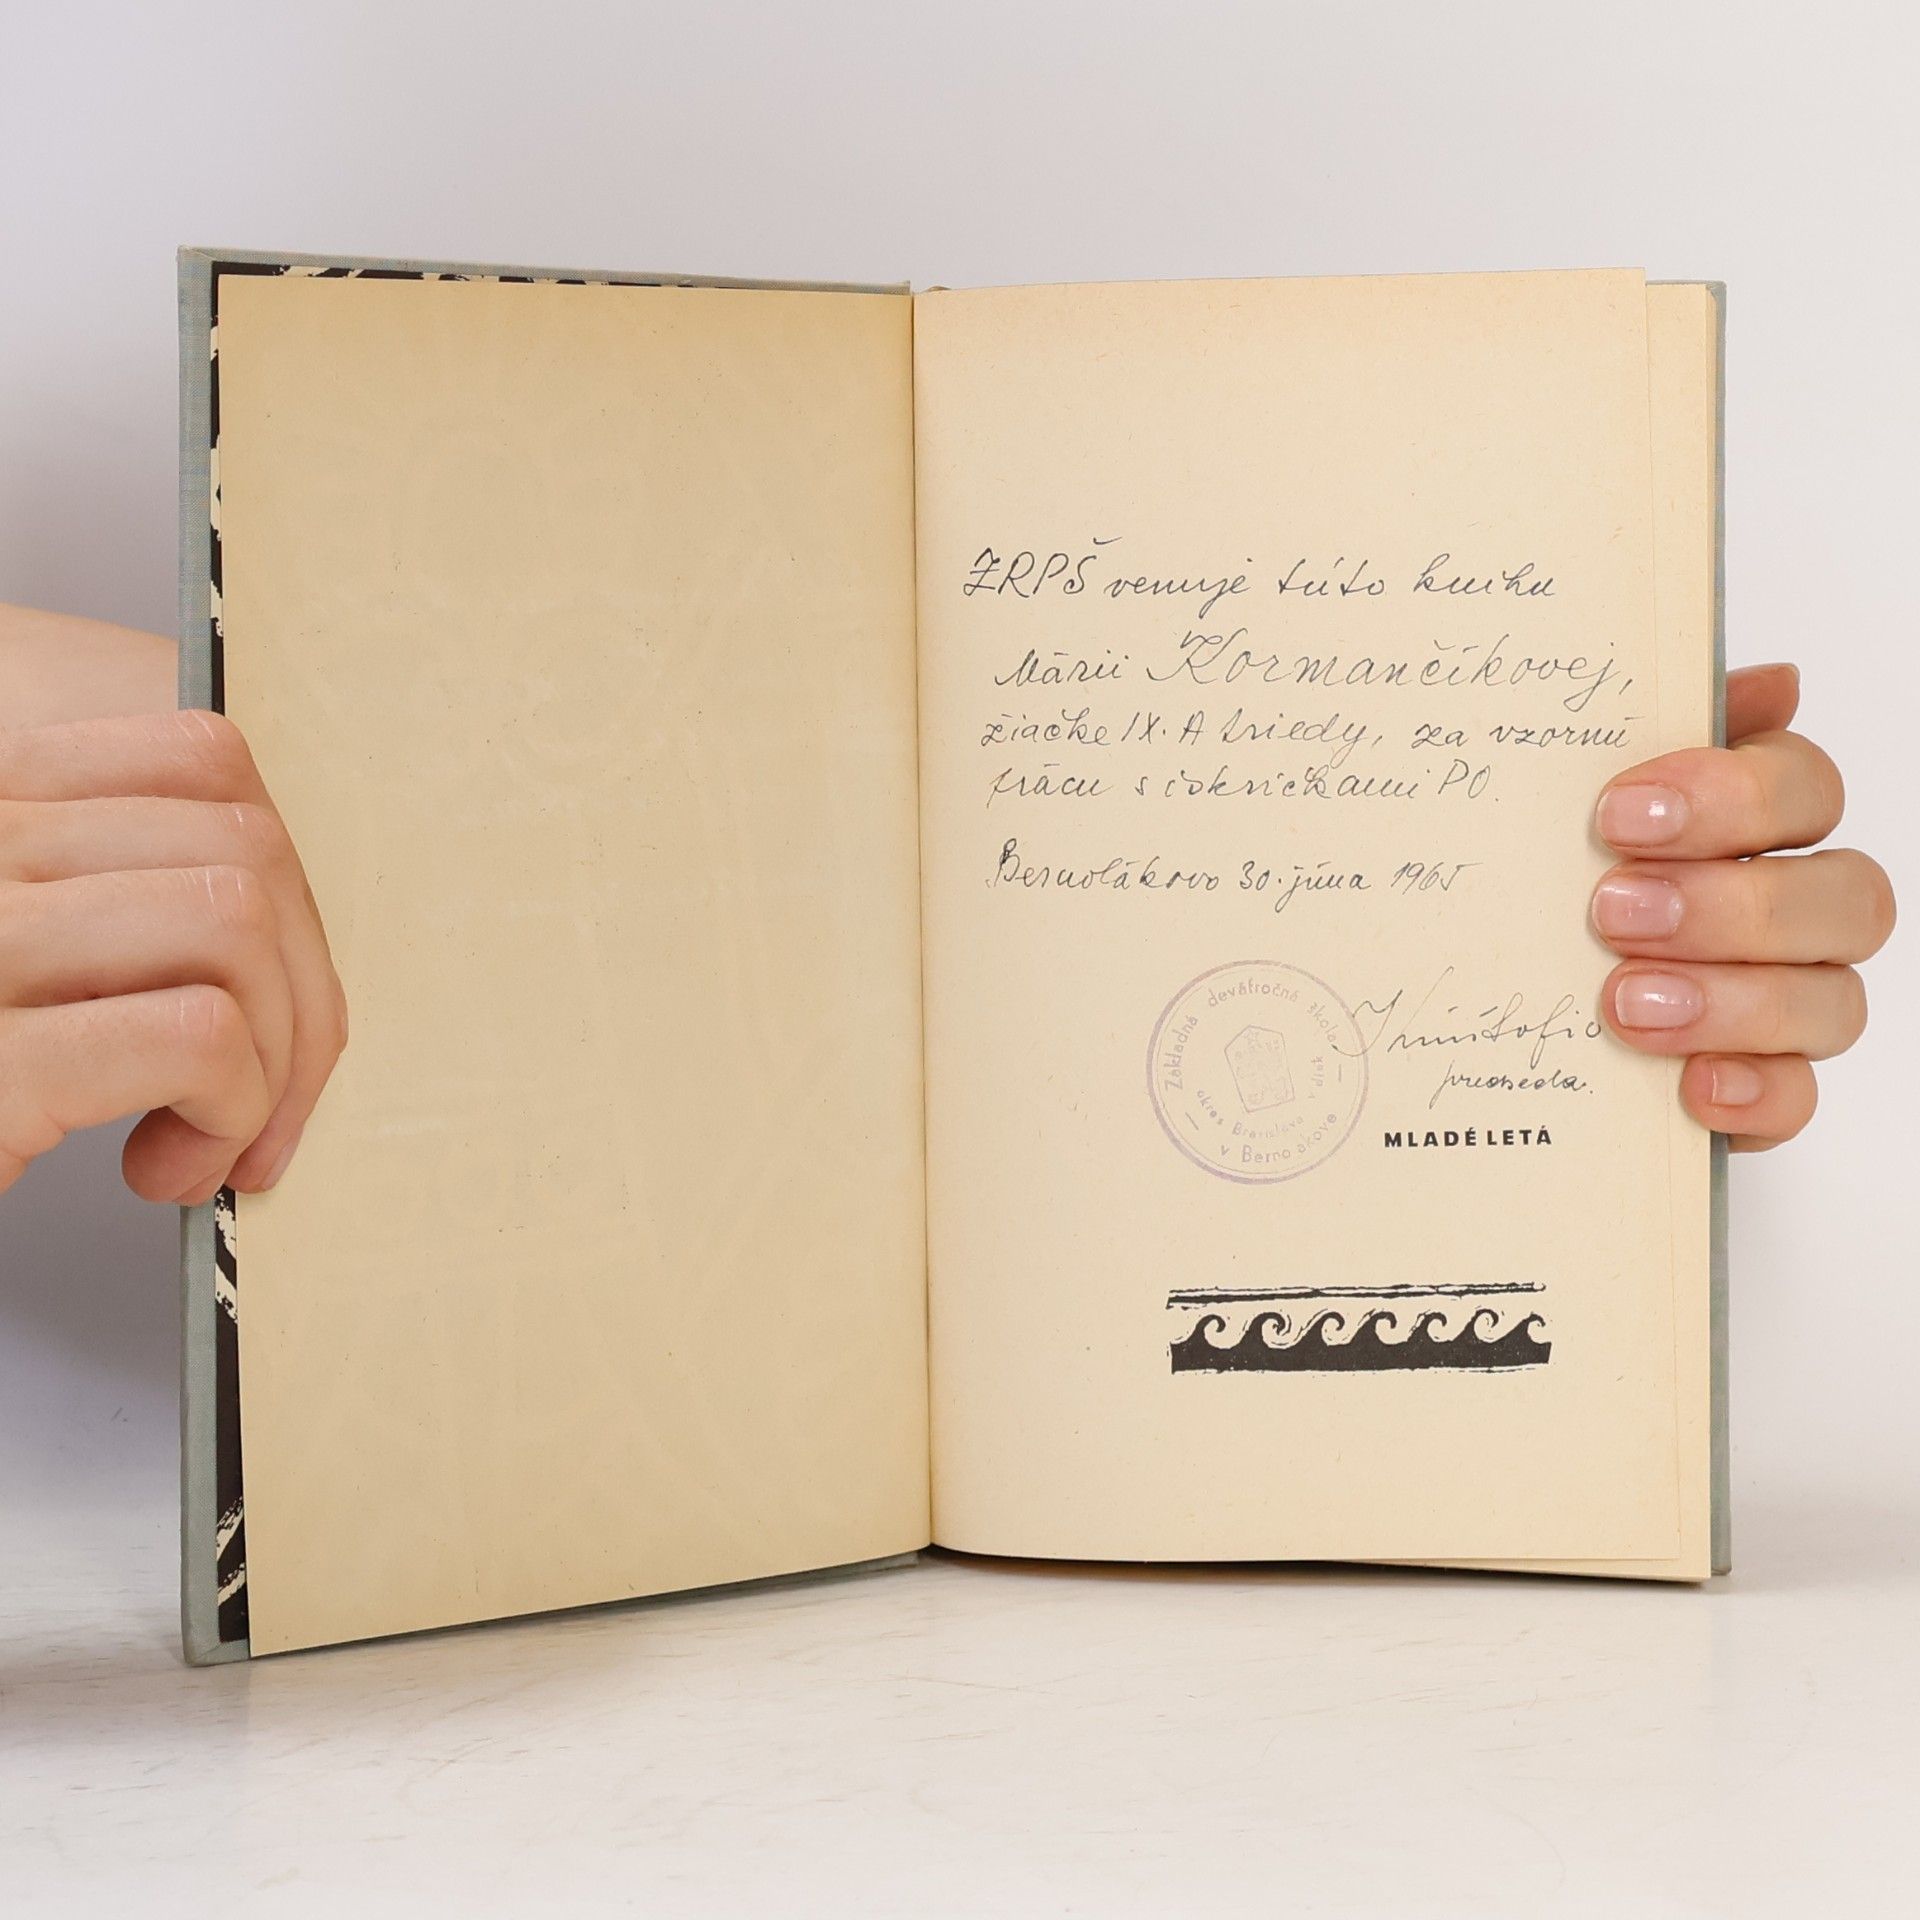 ZRPŠ venuje túto knihu
Márii Kormančíkovej,
žiačke IX. A triedy, za vzornú
prácu s iskričkami PO.
Bernolákovo 30. júna 1965
predseda.
Základná deväťročná škola
okres Bratislava vidiek
v Berno akove
MLADÉ LETÁ